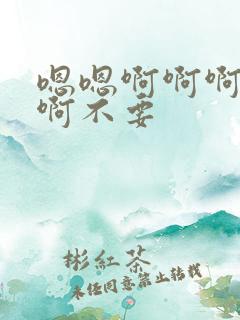 嗯嗯啊啊啊
啊不要
彬紅茶
未经同意禁止转载